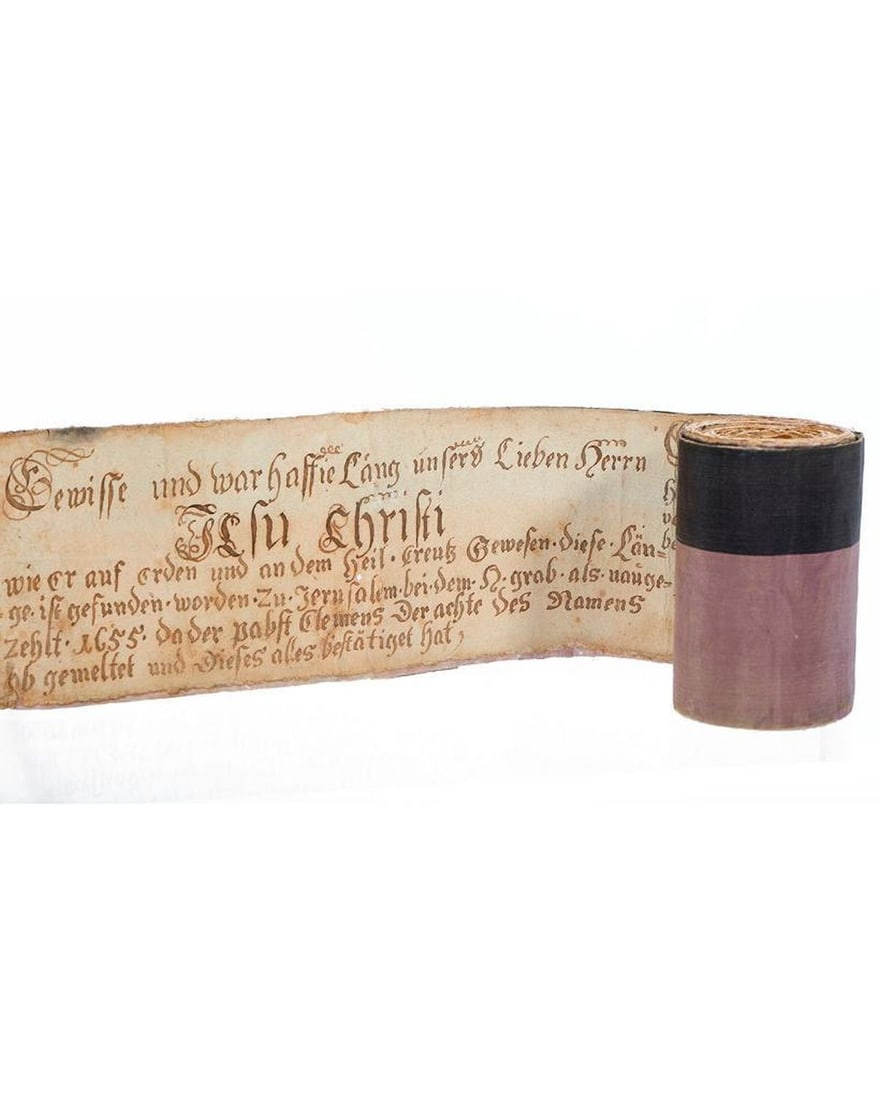 Gewisse und warhaffte Läng unsers Lieben Herrn
JEsu Christi
wie er auf erden und an dem Heil · Creutz Gewesen · diese · Län=
ge · ist gefunden · worden · Zu · Jerusalem · bei · dem · H · grab · als
Zehlt · 1655 · da der pabst Clemens Der achte des Namens
ob gemeltet und Dieses alles bestätiget hat,